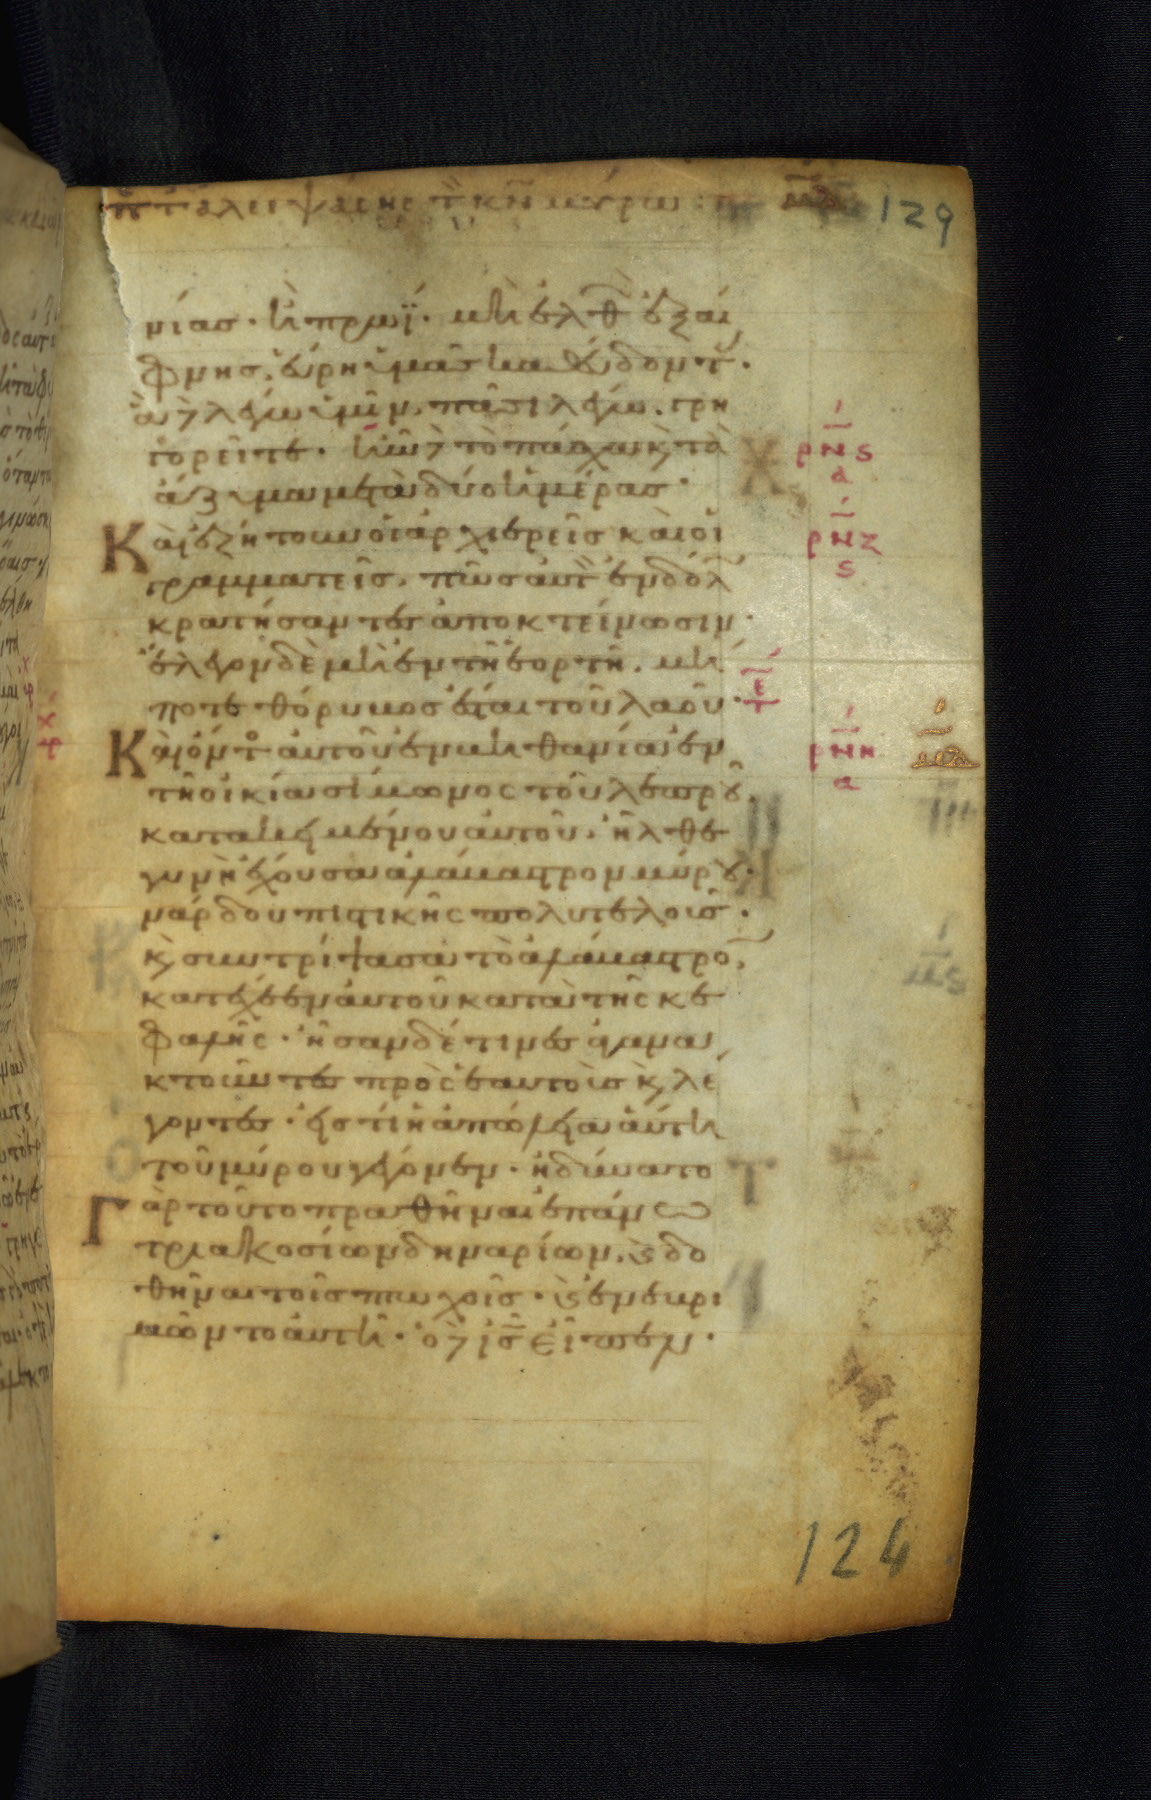 τ αλειψάσης τ κν μύρω 129
νίας · ἢ πρωΐ · μὴ ἐλθ ἐξαί
φνης, εὕρη ὑμᾶς καθεύδοντ ·
ἃ δ λέγω ὑμῖν, πᾶσι λέγω, γρη
γορεῖτε · ἦν δ τὸ πάσχα κ τὰ
ἄζυμα μετὰ δύο ἡμέρας ·
Καὶ ἐζήτουν οἱ ἀρχιερεῖς καὶ οἱ
γραμματεῖς, πῶς αὐτ ἐν δόλ
κρατήσαντες ἀποκτείνωσιν ·
ἔλεγον δὲ μὴ ἐν τῆ ἑορτῆ, μή
ποτε θόρυβος ἔσται τοῦ λαοῦ ·
Καὶ ὄντ αὐτοῦ ἐν βηθανία ἐν
τῆ οἰκία σίμωνος τοῦ λεπροῦ,
κατακειμένου αὐτοῦ, ἦλθε
γυνὴ ἔχουσα ἀλάβαστρον μύρου
νάρδου πιστικῆς πολυτελοῦς ·
κ συντρίψασα τὸ ἀλάβαστρο,
κατέχεεν αὐτοῦ κατὰ τῆς κε
φαλῆς · ἦσαν δέ τινες ἀγανα
κτοῦντες πρὸς ἑαυτοὺς κ λέ
γοντες · εἰς τί ἡ ἀπώλεια αὕτη
τοῦ μύρου γέγονεν · ἠδύνατο
Γὰρ τοῦτο πραθῆναι ἐπάνω
τριακοσίων δηναρίων, κ δο
θῆναι τοῖς πτωχοῖς · κ ἐνεβρι
μῶντο αὐτῆ · ὁ δ ις εἶπεν ·
ρνς
α
ρνζ
ς
ρνη
α
μδ
μς
124